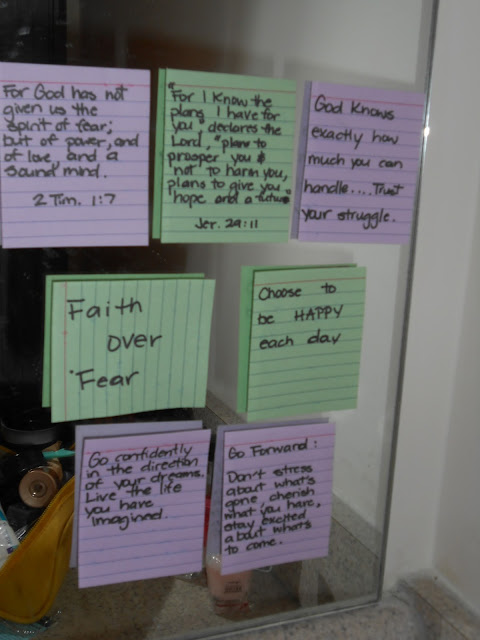 For God has not
given us the
spirit of fear;
but of power, and
of love, and a
sound mind.
2 Tim. 1:7
"For I know the
plans I have for
you," declares the
Lord, "plans to
prosper you &
not to harm you,
plans to give you
hope and a future"
Jer. 29:11
God knows
exactly how
much you can
handle....Trust
your struggle.
Faith
over
Fear
Choose to
be HAPPY
each day
Go confidently
in the direction
of your dreams.
Live the life
you have
imagined.
Go Forward:
Don't stress
about what's
gone, cherish
what you have,
stay excited
about what's
to come.